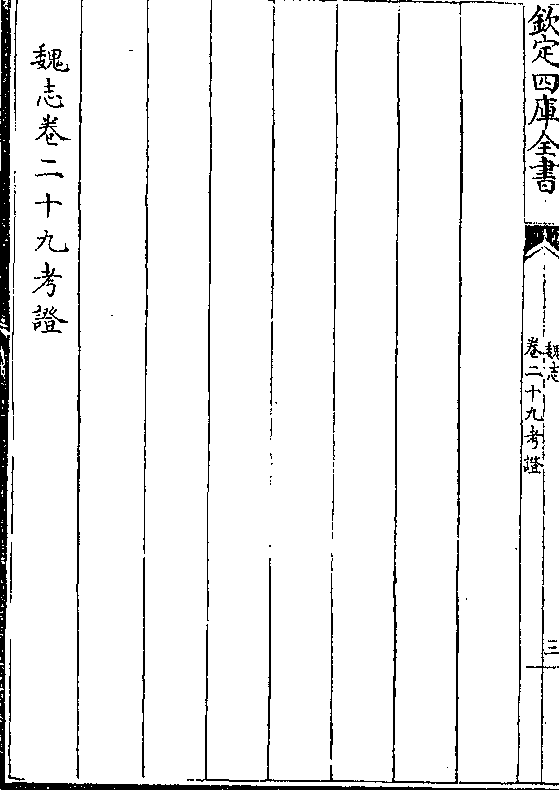 欽定四庫全書
魏志
卷二十九考證
三
魏志卷二十九考證